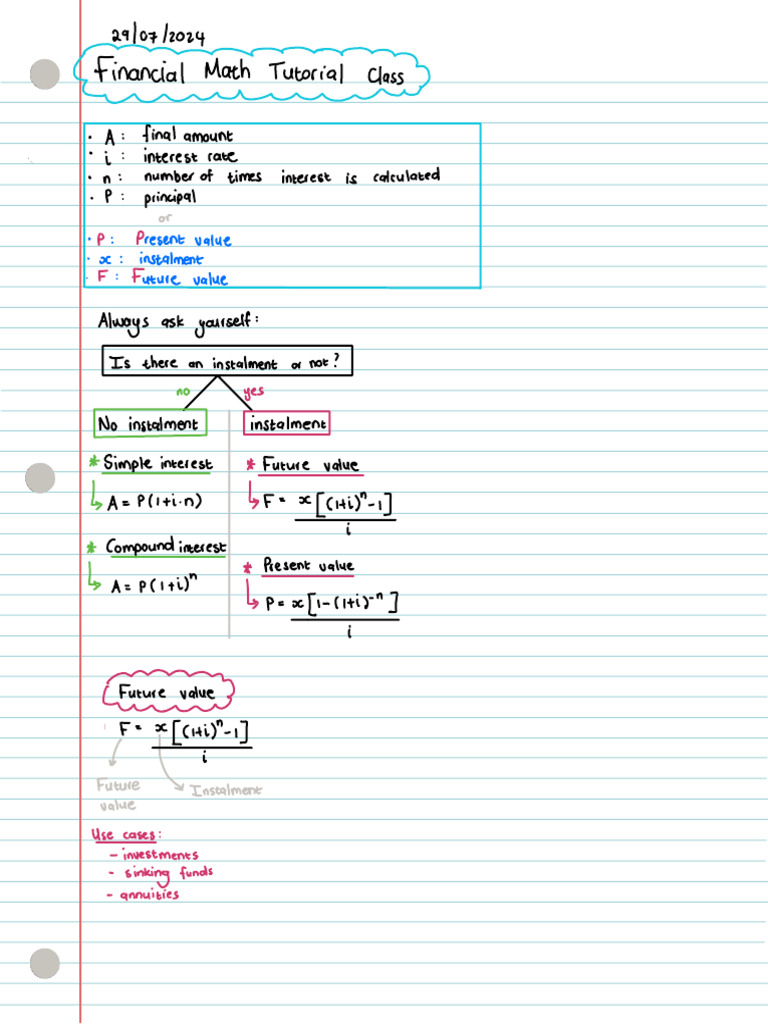 29/07/2024
Financial Math Tutorial Class
· A: final amount
· i: interest rate
· n: number of times interest is calculated
· P: principal
or
· P: Present value
· x: instalment
· F: Future value
Always ask yourself:
Is there an instalment or not?
no yes
No instalment
* Simple interest
A = P(1+i·n)
* Compound interest
A = P(1+i)^n
instalment
* Future value
F = x[(1+i)^n - 1] / i
* Present value
P = x[1-(1+i)^-n] / i
Future value
F = x[(1+i)^n - 1] / i
Future value
Instalment
Use cases:
- investments
- sinking funds
- annuities